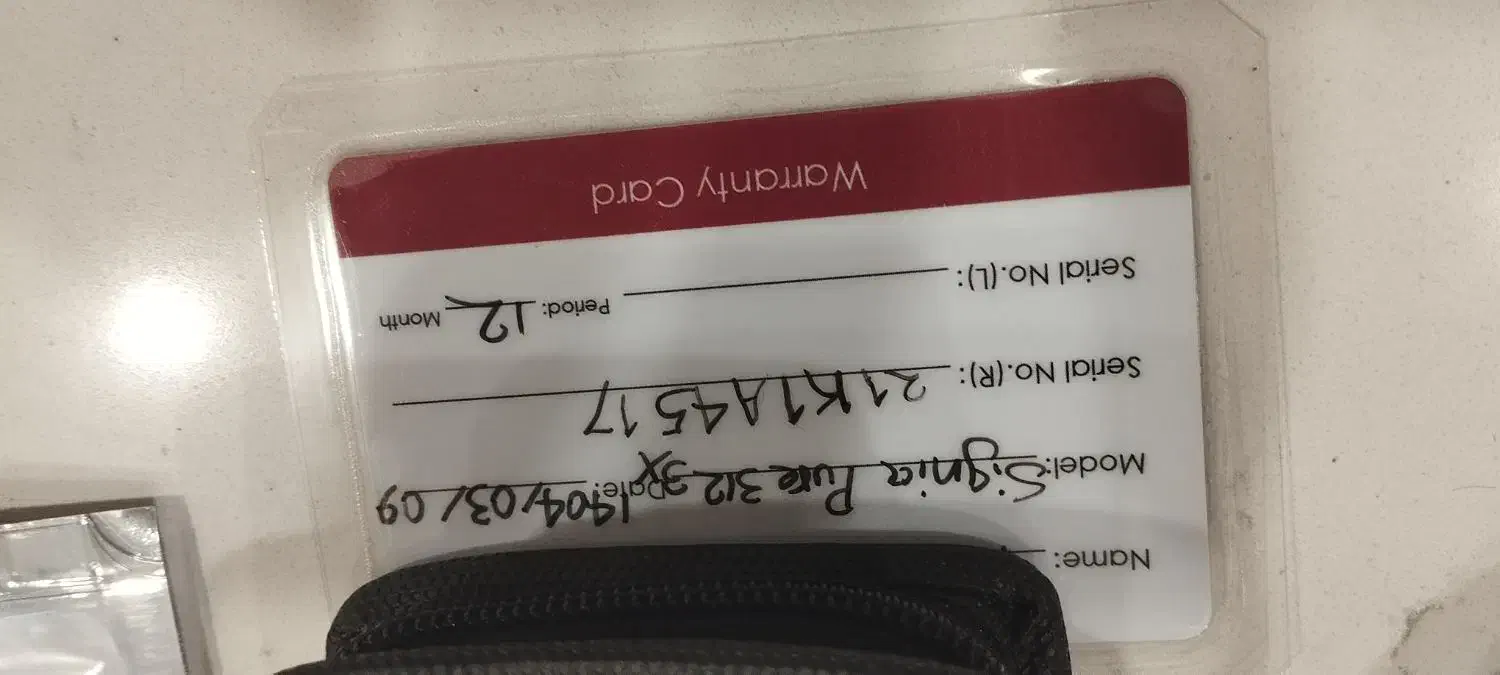 Name:
Model: Signia Pure 312 3X Date: 1404/03/09
Serial No.(R): 21K1A4517
Serial No.(L): Period: 12 Month
Warranty Card